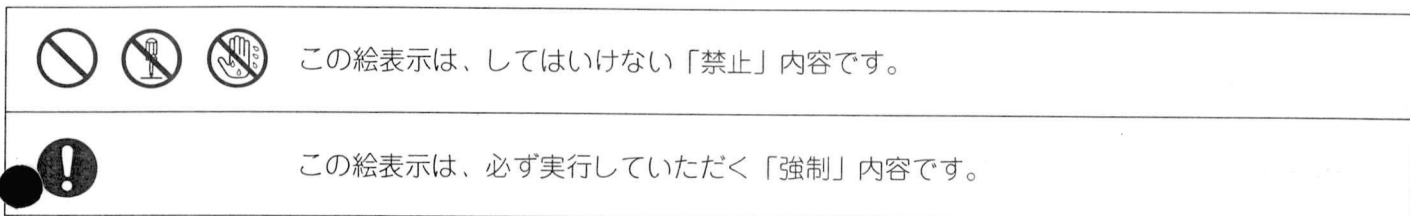 この絵表示は、してはいけない「禁止」内容です。
この絵表示は、必ず実行していただく「強制」内容です。